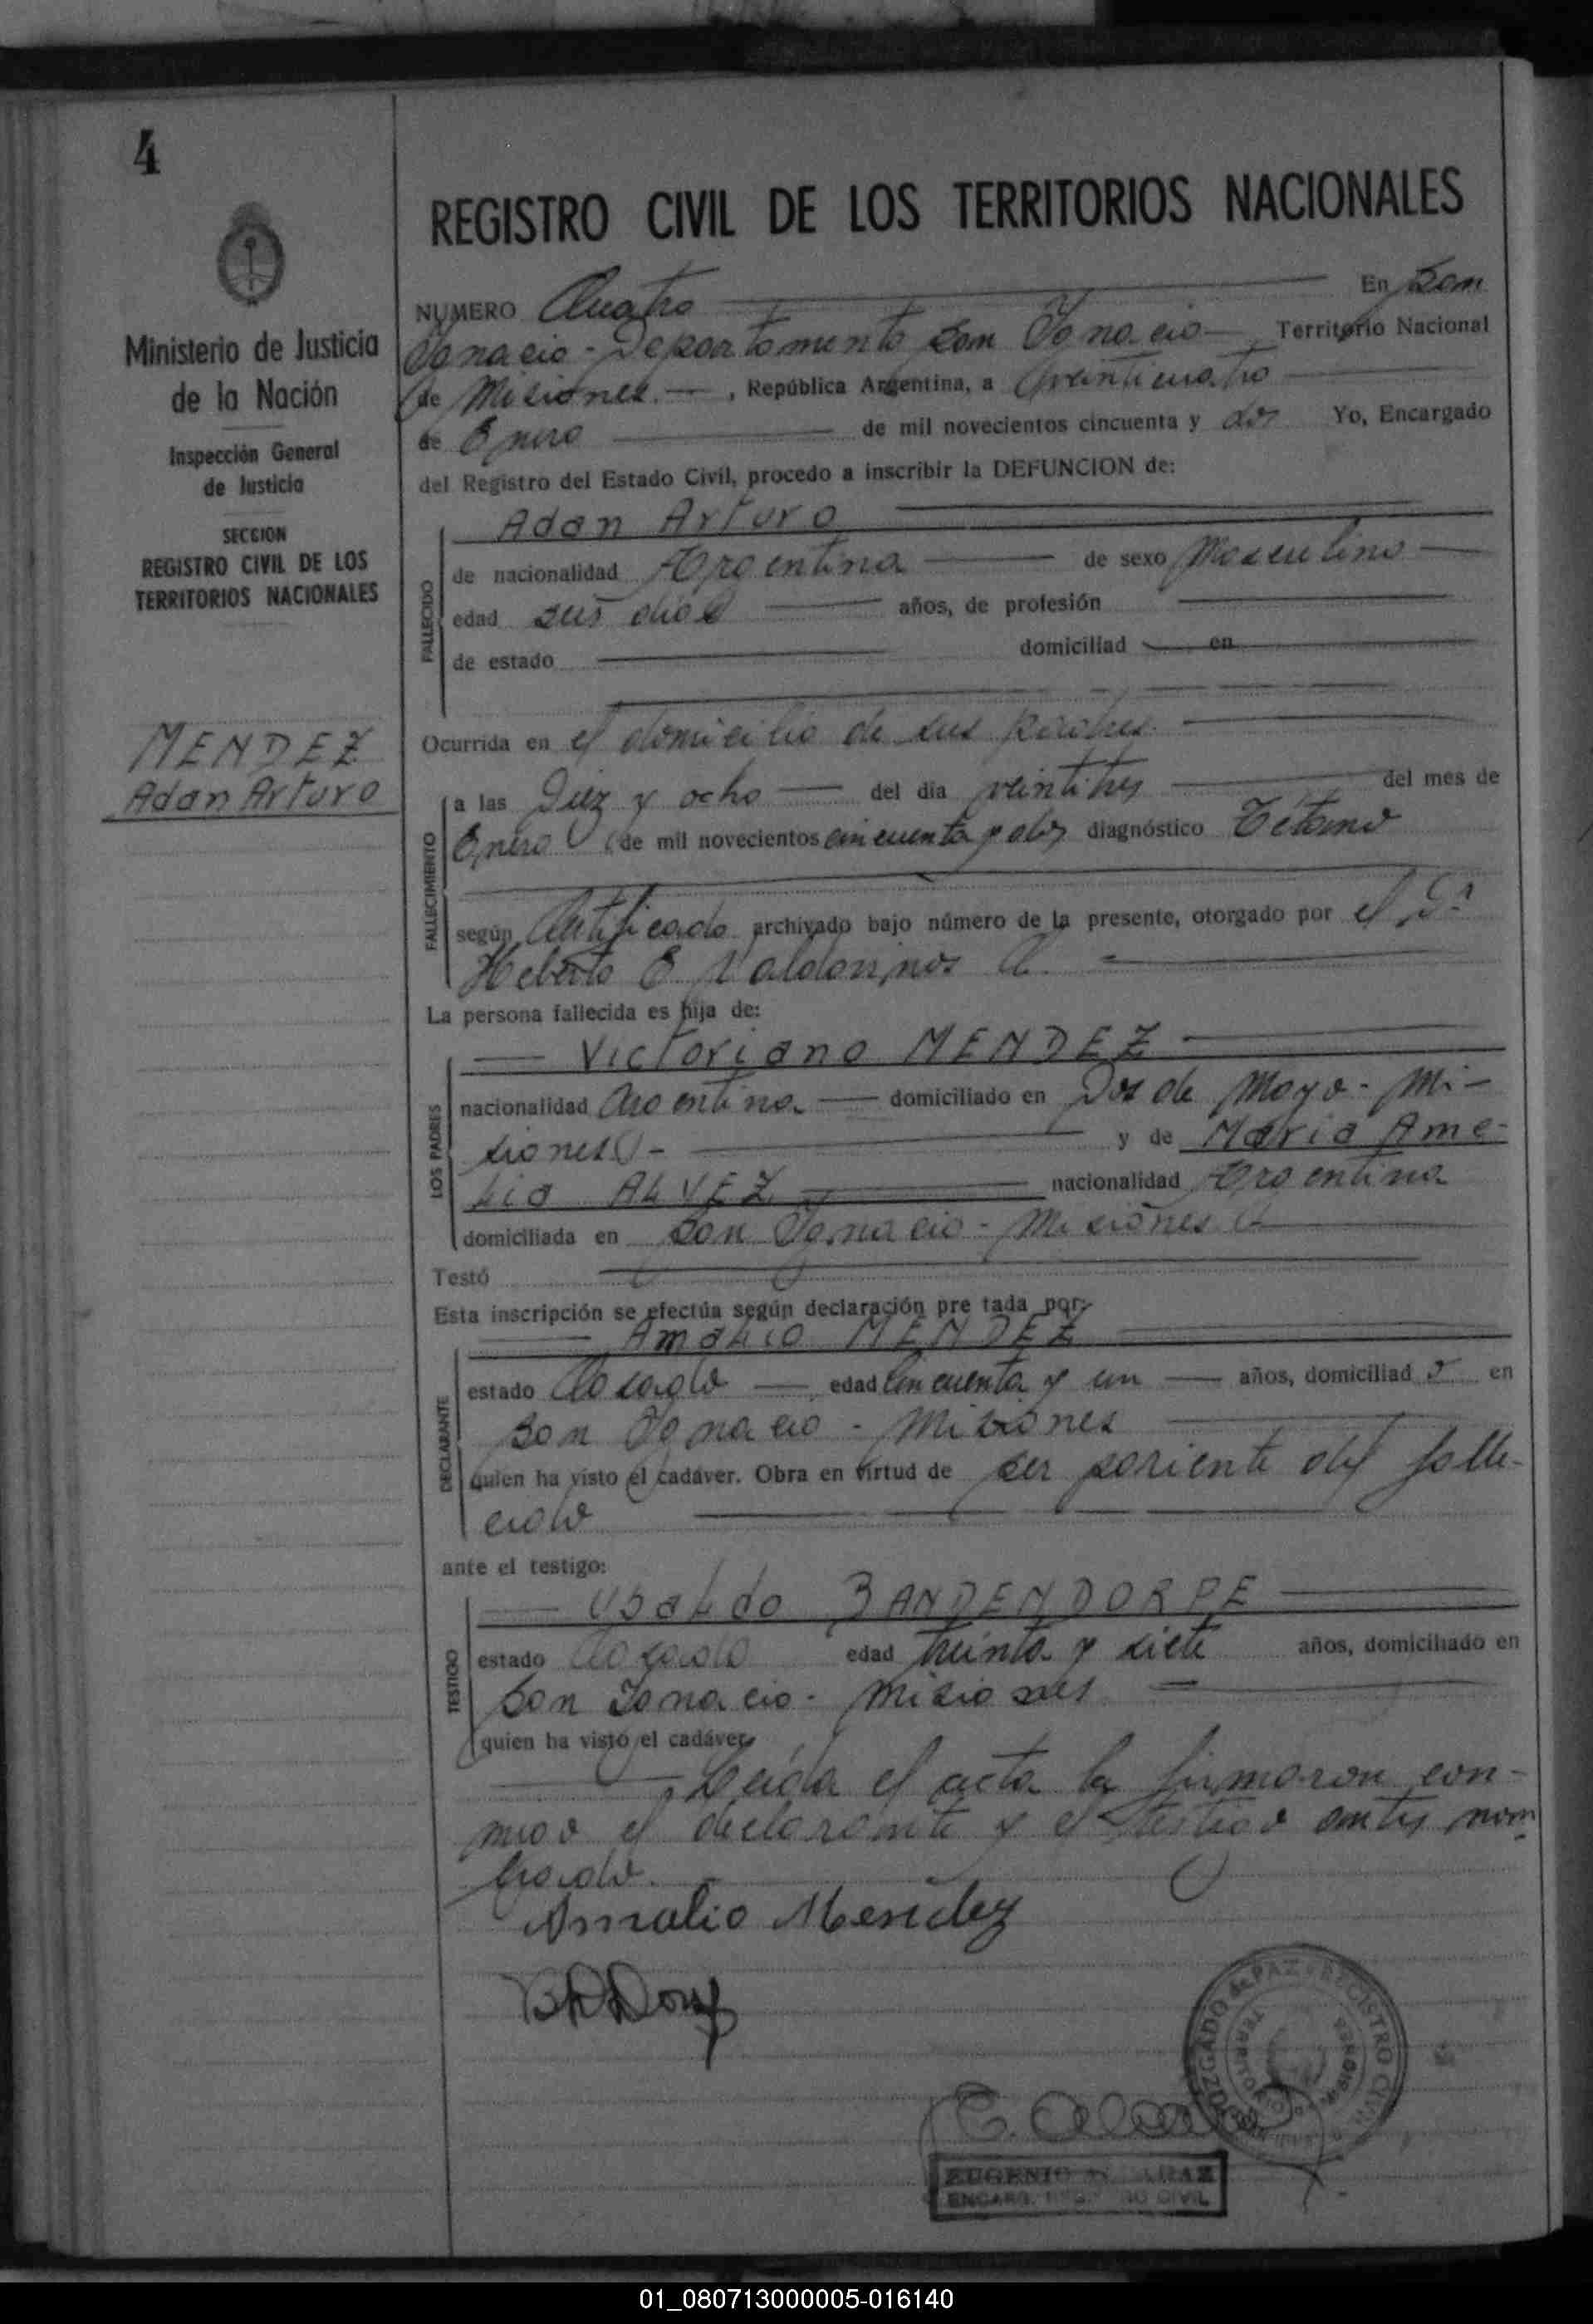 4
REGISTRO CIVIL DE LOS TERRITORIOS NACIONALES
Ministerio de Justicia
de la Nación
Inspección General
de Justicia
SECCION
REGISTRO CIVIL DE LOS
TERRITORIOS NACIONALES
MENDEZ
Adan Arturo
NUMERO Cuatro En San
Ignacio - Departamento San Ignacio - Territorio Nacional
de Misiones. - , República Argentina, a veinticuatro
de Enero de mil novecientos cincuenta y dos Yo, Encargado
del Registro del Estado Civil, procedo a inscribir la DEFUNCION de:
Adan Arturo
FALLECIDO
de nacionalidad Argentina de sexo Masculino
edad seis dias años, de profesión
de estado domiciliad en
Ocurrida en el domicilio de sus padres.
FALLECIMIENTO
a las Diez y ocho del dia veintitres del mes de
Enero de mil novecientos cincuenta y dos diagnóstico Tétano
según Certificado archivado bajo número de la presente, otorgado por el Dr.
Heberto E.
La persona fallecida es hija de:
Victoriano MENDEZ
LOS PADRES
nacionalidad Argentina domiciliado en Dos de Mayo - Mi-
siones - y de Maria Ame-
lia ALVEZ nacionalidad Argentina
domiciliada en San Ignacio - Misiones
Testó
Esta inscripción se efectúa según declaración pre tada por:
Amalio MENDEZ
DECLARANTE
estado Casado edad Cincuenta y un años, domiciliad o en
San Ignacio - Misiones
quien ha visto el cadáver. Obra en virtud de ser pariente del falle-
cido
ante el testigo:
Ubaldo BANDENDORPE
TESTIGO
estado Casado edad treinta y siete años, domiciliado en
San Ignacio - Misiones
quien ha visto el cadáver.
Leida el acta la firmaron con-
migo el declarante y el testigo antes nom-
brado.
Amalio Mendez
JUZGADO de PAZ Y REGISTRO CIVIL
EUGENIO
ENCARG. REGISTRO CIVIL
01_080713000005-016140